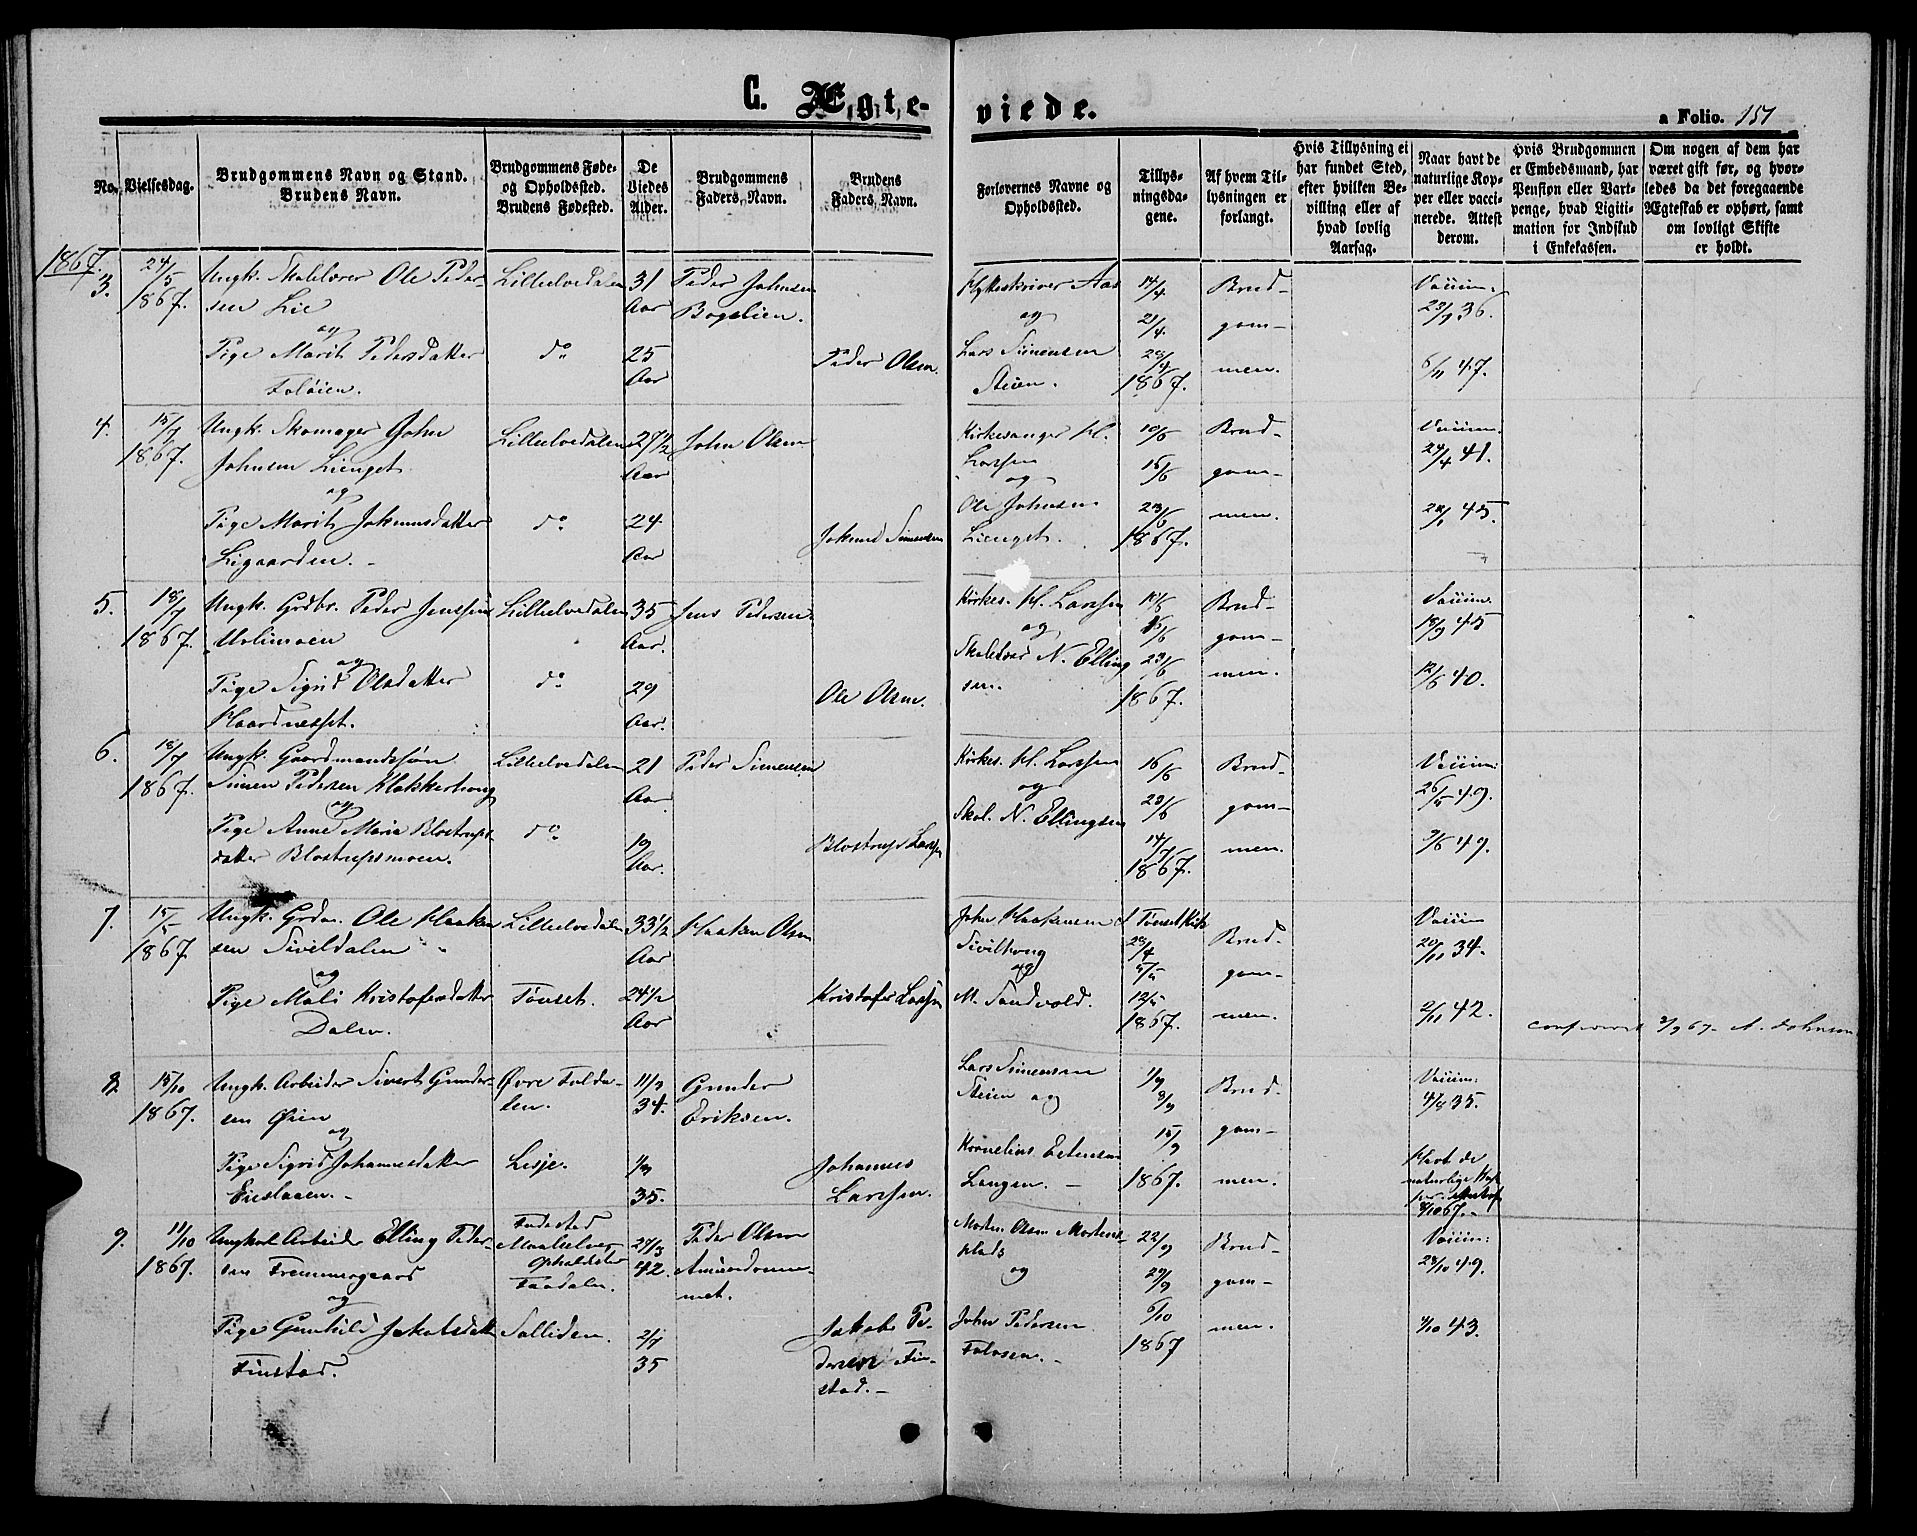 C. Ægte-
viede.
a Folio. 151
No.
Vielsesdag.
Brudgommens Navn og Stand.
Brudens Navn.
Brudgommens Føde-
og Opholdssted.
Brudens Fødested.
De
Viedes
Alder.
Brudgommens
Faders Navn.
Brudens
Faders Navn.
Forlovernes Navne og
Opholdssted.
Tillys-
ningsda-
gene.
Af hvem Til-
lysningen er
forlangt.
Hvis Tillysning ei
har fundet Sted,
efter hvilken Be-
villing eller af
hvad lovlig
Aarsag.
Naar havt de
naturlige Kop-
per eller vacci-
nerede. Attest
derom.
Hvis Brudgommen
er Embedsmand, har
Pension eller Vart-
penge, hvad Ligiti-
mation for Indskud
i Enkekassen.
Om nogen af dem har
været gift før, og hvor-
ledes da det foregaaende
Ægteskab er ophørt, samt
om lovligt Skifte
er holdt.
1867.
3.
24/5
1867.
Ungk. Skolelærer Ole Peder-
sen Lie
og
Pige Marit Pedersdatter
Foløien.
Lillelvedalen
do
31
Aar
25
Aar
Peder Johnsen
Bogelien.
Peder Olsen.
Aas
og
Lars Simensen
Steien.
14/4
21/4
28/4
1867.
Brud-
gom-
men.
Vaccin.
36.
6/11 47.
4.
15/7
1867.
Ungk. Skomager John
Johnsen Lienget
og
Pige Marit Johannesdatter
Ligaarden.
Lillelvedalen
do
27 1/2
Aar
24
Aar
John Olsen
Simensen
Kirkesanger H.
Larssen
og
Ole Johnsen
Lienget.
10/6
16/6
23/6
1867.
Brud-
gom-
men.
Vaccin.
24/4 41.
45.
5.
18/7
1867.
Ungk. Grdbr. Peder Jenssen
og
Pige Sigrid Olsdatter
Haardnesset.
Lillelvedalen
do
35
Aar.
29
Aar.
Jens Pedersen
Ole Olsen.
Kirkes. H. Larssen
og
N. Elling
sen.
10/6
16/6
23/6
1867.
Brud-
gom-
men.
Vaccin.
18/9 45
12/6 40.
6.
18/7
1867.
Ungk. Gaardmandssøn
Simen Pedersen Klokkerhaug
og
Pige Anne Maria Blostrups-
datter Blostrupsmoen.
Lillelvedalen
do
21
Aar
19
Aar.
Peder Simensen
Blostrup Larssen
Kirkes. H. Larssen
og
Skol. N. Ellingsen
16/6
23/6
14/7
1867.
Brud-
gom-
men.
Vaccin:
26/5 49.
9/6 49.
7.
15/5
1867.
Ungk. Ole Haaken
sen Siveldalen
og
Pige Mali Kristofersdatter
Dalen.
Lillelvedalen
Tönset.
33 1/2
Aar
24 1/2
Aar
Haaken Olsen
Kristofer Larssen
John Haakensen
Sivilhaug
og
M. Sandvold.
I Tönset Kirke
28/4
5/5
12/5
1867.
Brud-
gom-
men.
Vaccin
20/11 34.
2/11 42.
confereret 3/9 67. A. Johnson
8.
15/10
1867.
Ungk. Arbeider Sivert Gunder-
sen Øien
og
Pige Sigrid Johannesdatter
Enslaaen.
Øvre Folda-
len.
Lesje.
11/2
34.
1/3
35.
Gunder
Eriksen.
Johannes
Larssen.
Lars Simensen
Steien og
Kornelius Estensen
Langen.
1/9
8/9
15/9
1867.
Brud-
gom-
men.
Vaccin:
4/8 35.
Havt de
naturlige Kop
9.
11/10
1867.
Ungkarl Arbeider Elling Peder-
sen Frammergaard
og
Pige Gunhild Jakobsdatt
Finstad.
Fødested
Maalselven
Opholdssted
Faadalen.
Solliden.
24/3
42.
2/7
35
Peder Olsen
Jakob Pe-
dersen Fin-
stad.
Morten Olsen Mortens-
plads
og
John Pedersen
22/9
29/9
6/10
1867
Brud-
gom-
men.
Vaccin:
28/10 49.
43.